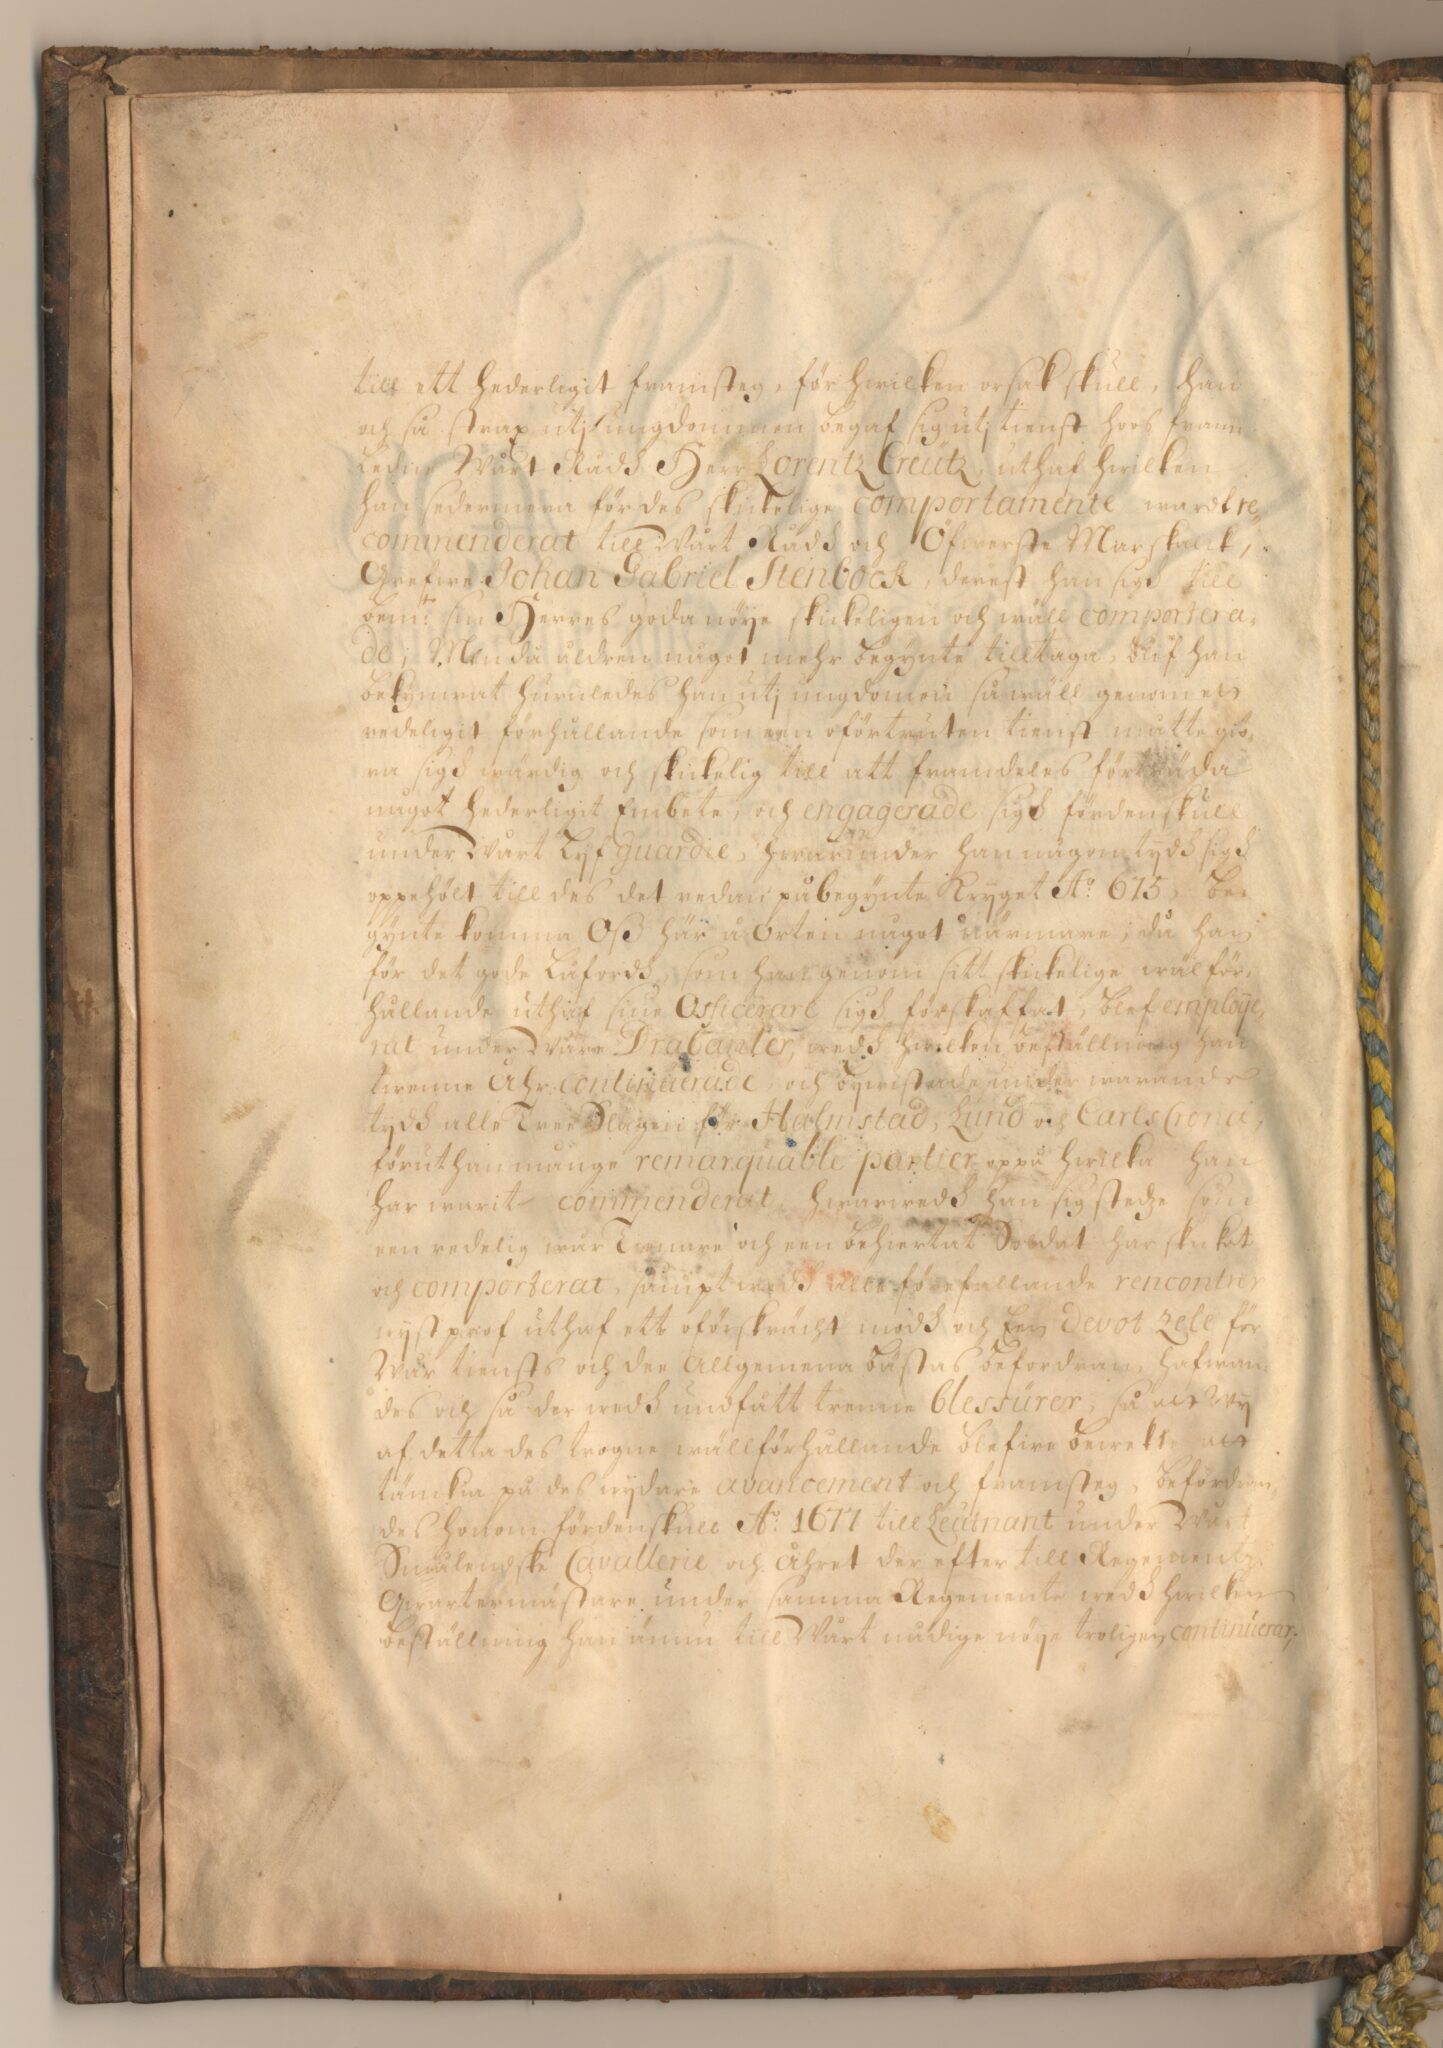 till ett hederligit framsteg, för hwilken orsak skull, han
och så strax utj ungdommen begaf sig utj tienst hoos fram
ledne Wårt Rådh Herr Lorentz Creütz, uthaf hwilken
han sedermera för des skickelige comportamente wardt re-
commenderat till Wårt Rådh och Öfwerste Marskalck,
Grefwe Johan Gabriel Stenbock, derest han sigh till
bem:te sin Herres goda nöije skickeligen och wäll comportera-
de; Men då åldren något mehr begynte tilltaga, blef han
bekymrat huruledes han utj ungdomen så wäll genom ett
redeligit förhållande som een oförtruten tienst måtte giö-
ra sigh wärdig och skickelig till att framdeles förträda
något hederligit Embete, och engagerade sigh fördenskull
under Wårt Lijf guardie, hwarunder han någon tijdh sigh
oppehölt till des det redan påbegynte Kryget A:o 675, be-
gynte komma Oss här å Orten något närmare, då han
för det gode Låfordh, som han genom sitt skickelige wälför-
hållande uthaf sine Officerare sigh förskaffat, blef employe-
rat under Wåre Drabanter, wedh hwilken beställning han
twenne Åhr continuerade, och bywistade under warande
tydh alle Tree Slagen för Halmstad, Lund och CarlsCrona,
föruthan många remarquable partier oppå hwilka han
har warit commenderat, hwarwedh han sig stedze som
een redelig wår Tienare och een behiertat Soldat har skickat
och comporterat, sampt wedh alle förefallande rencontrer
wyst prof uthaf ett oförskräckt modh och Een devot zele för
Wår tiensts och dee Allgemena bästas befordran, hafwan-
des och så der wedh undfått trenne blessürer, så att Wij
af detta des trogne wällförhållande blefwe bewekte att
tänckia på des wydare avancement och framsteg, befordran-
des honom fördenskull A:o 1677 till Leutnant under Wårt
Smålendske Cavallerie och åhret der efter till Regementz
Qwartermästare under samma Regemente wedh hwilken
beställning han ännu till Wårt nådige nöije troligen continuerar.